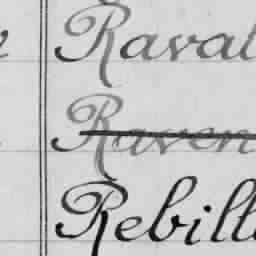 Raval
Raven
Rebill